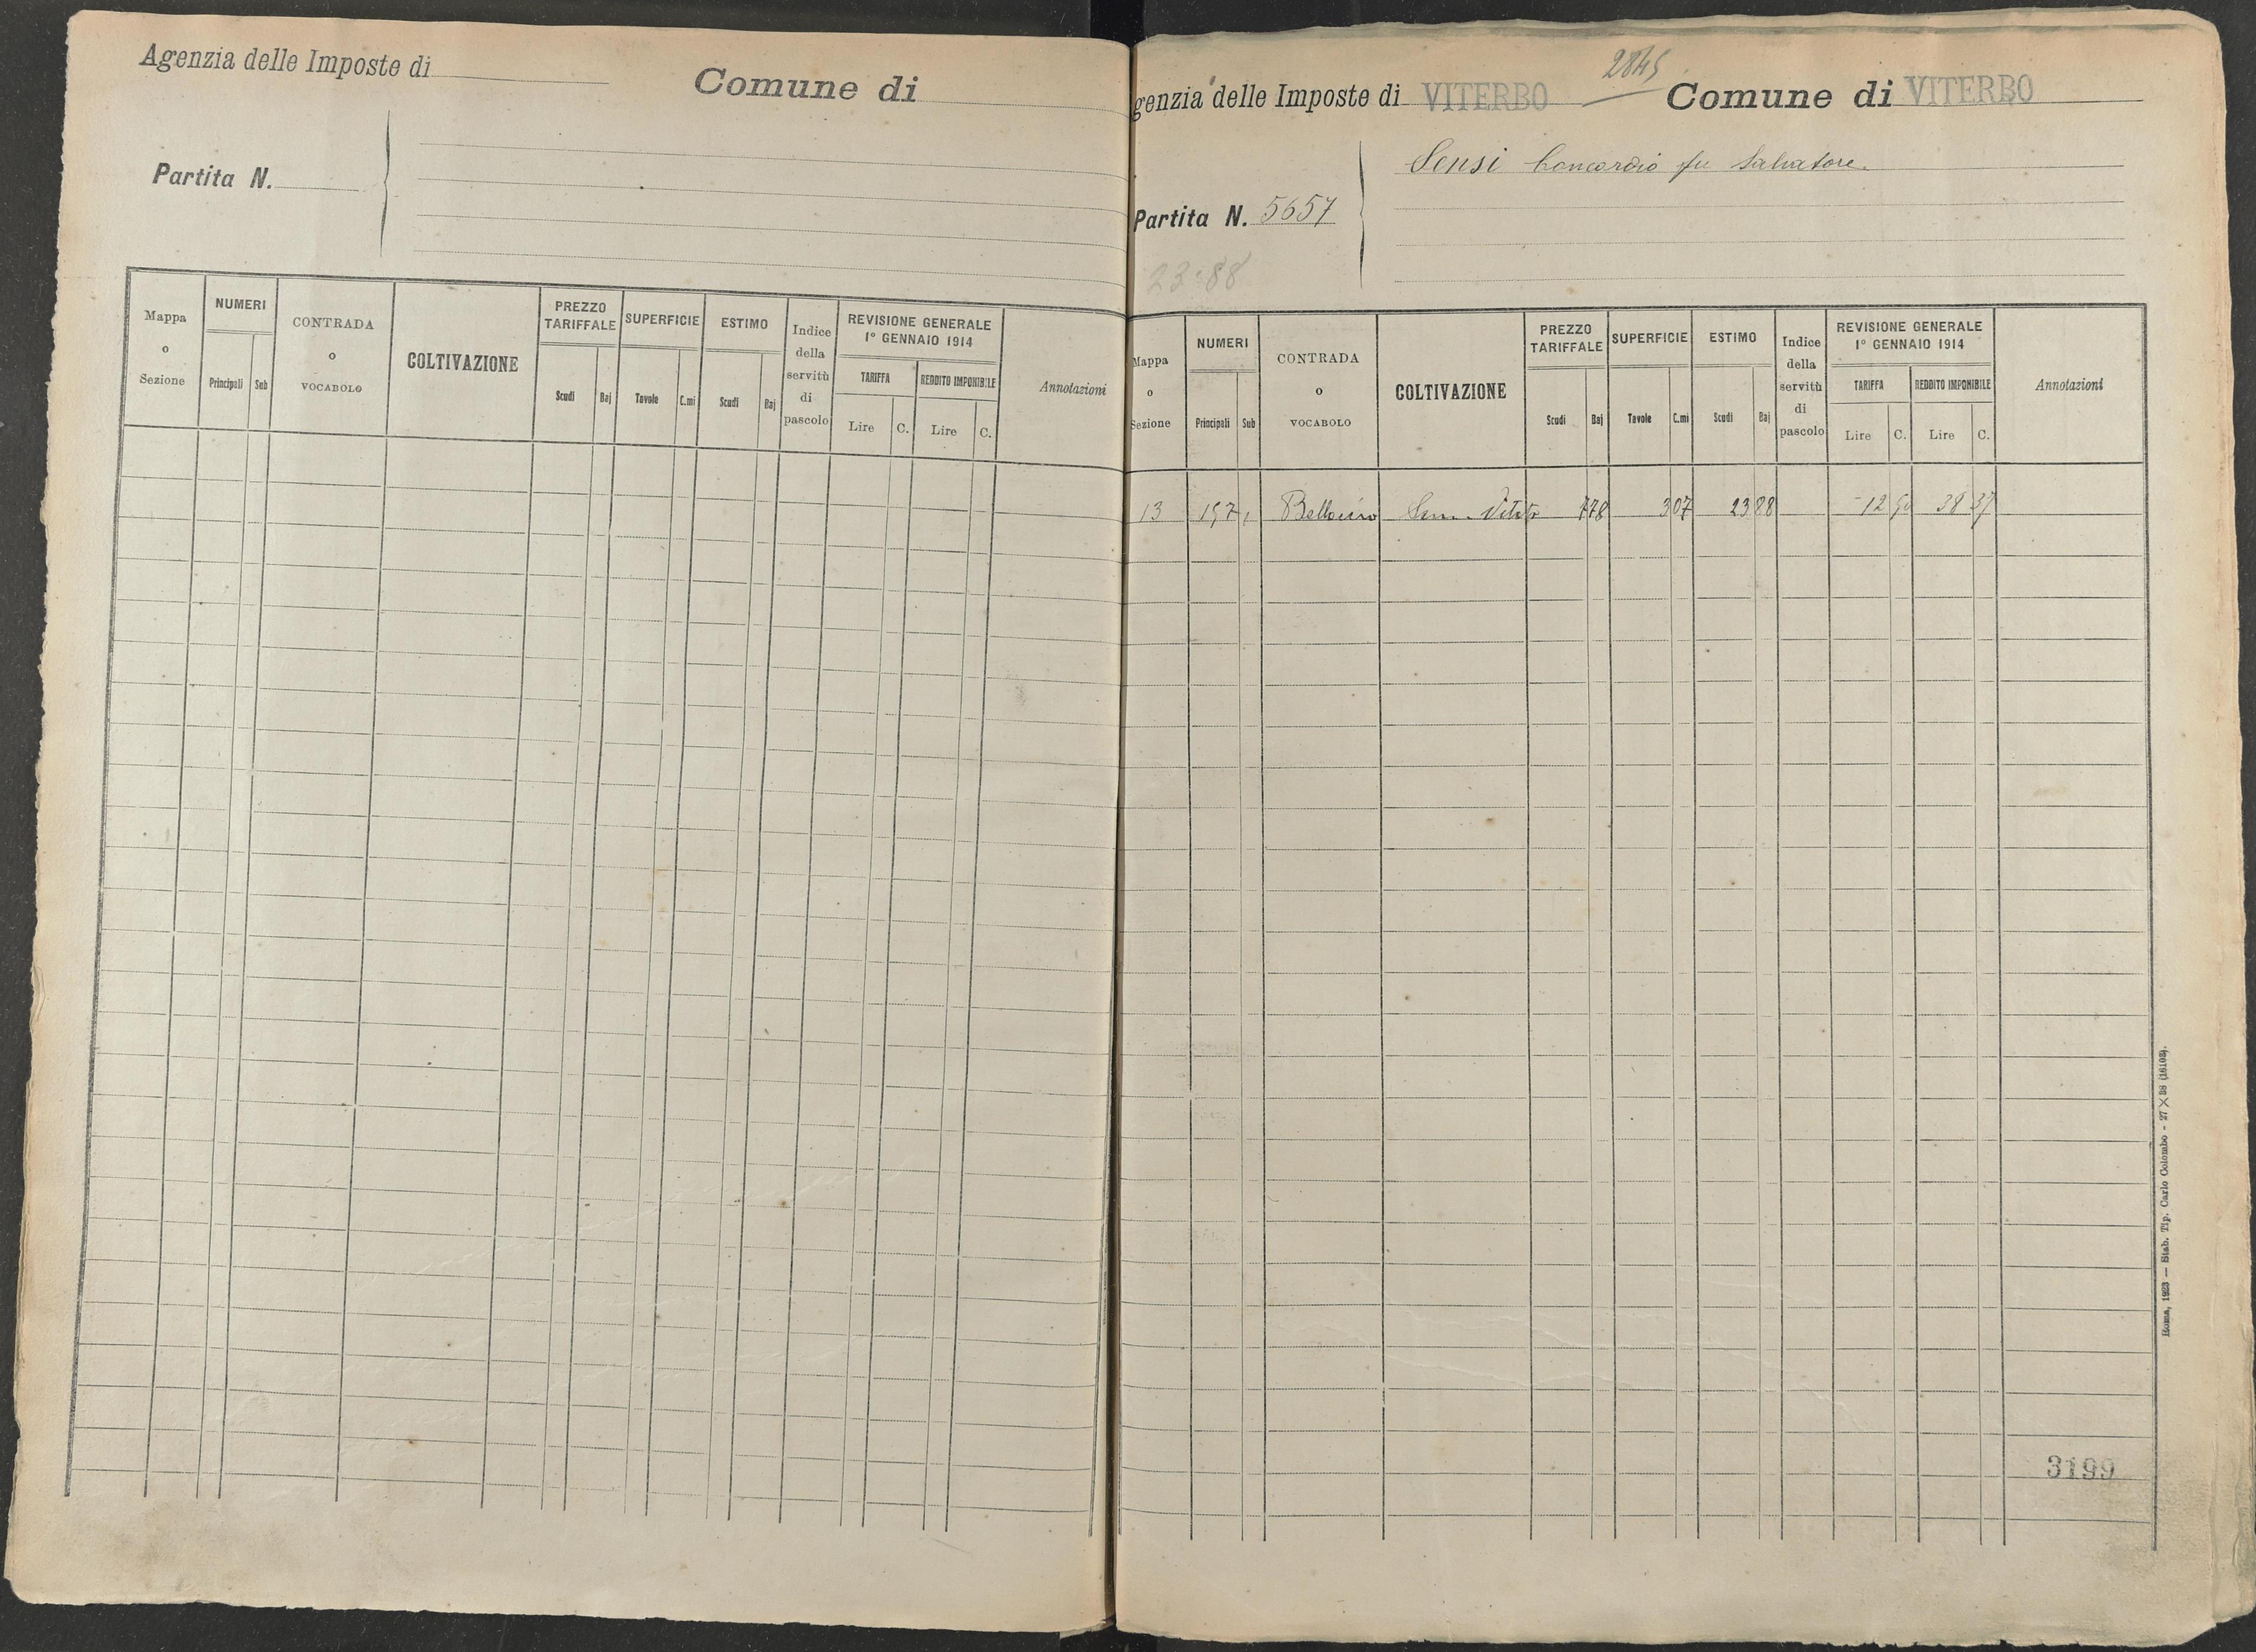 Agenzia delle Imposte di
Comune di
Partita N.
Mappa o Sezione
NUMERI
Principali Sub
CONTRADA o VOCABOLO
COLTIVAZIONE
PREZZO TARIFFALE
Scudi Baj
SUPERFICIE
Tavole C.mi
ESTIMO
Scudi Baj
Indice della servitù di pascolo
REVISIONE GENERALE
1° GENNAIO 1914
TARIFFA
Lire C.
REDDITO IMPONIBILE
Lire C.
Annotazioni
2845
genzia delle Imposte di VITERBO Comune di VITERBO
Sensi Concordio fu Salvatore
Partita N. 5657
23:88
Mappa o Sezione
NUMERI
Principali Sub
CONTRADA o VOCABOLO
COLTIVAZIONE
PREZZO TARIFFALE
Scudi Baj
SUPERFICIE
Tavole C.mi
ESTIMO
Scudi Baj
Indice della servitù di pascolo
REVISIONE GENERALE
1° GENNAIO 1914
TARIFFA
Lire C.
REDDITO IMPONIBILE
Lire C.
Annotazioni
13 Sem. Vitato 778 307 2388 12 50 38 37
3199
Roma, 1923 — Stab. Tip. Carlo Colombo - 27 X 38 (16103).